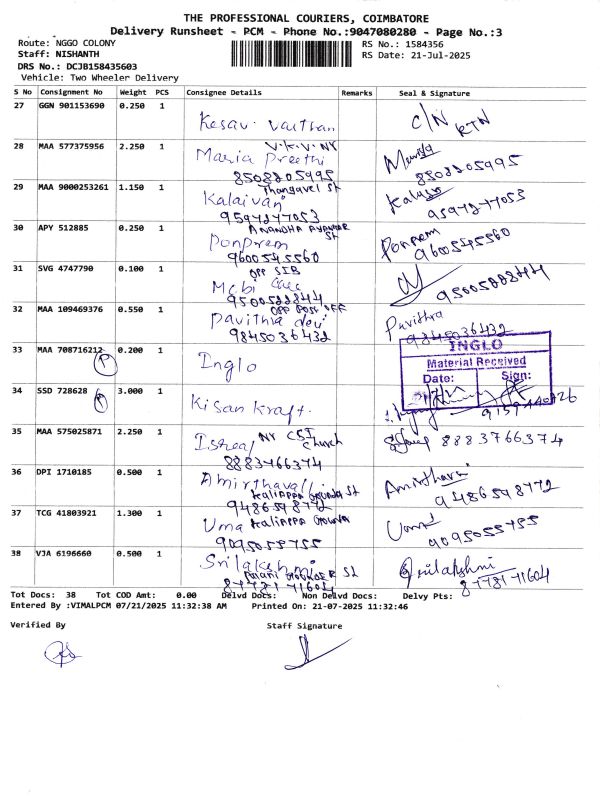 THE PROFESSIONAL COURIERS, COIMBATORE
Delivery Runsheet - PCM - Phone No.:9047080280 - Page No.:3
Route: NGGO COLONY RS No.: 1584356
Staff: NISHANTH RS Date: 21-Jul-2025
DRS No.: DCJB158435603
Vehicle: Two Wheeler Delivery
S No Consignment No Weight PCS Consignee Details Remarks Seal & Signature
27 GGN 901153690 0.250 1
Kesav. C/N RTN
28 MAA 577375956 2.250 1 V.K.V.NR
Maria Preethi
8508205995 8508205995
29 MAA 9000253261 1.150 1 Thangavel St
Kalaivani Kalaivani
9597277053 9597277053
30 APY 512885 0.250 1
Ponprem St Ponprem
9600545560 9600545560
31 SVG 4747790 0.100 1 OPP SIB
Mobi Care
9500588844 9500588844
32 MAA 109469376 0.550 1 OPP POST OFF
Pavithia devi Pavithra
9845036432 9845036432
33 MAA 708716212 0.200 1 P
Inglo
INGLO
Material Received
Date: Sign:
34 SSD 728628 3.000 1 P
Kisan Kraft.
35 MAA 575025871 2.250 1
NY CSI Church
8883766374 8883766374
36 DPI 1710185 0.500 1
Amirthavalli
9486598772 9486598772
37 TCG 41803921 1.300 1
Uma Uma
9095055755 9095055755
38 VJA 6196660 0.500 1
Srilakshmi Srilakshmi
8778171604 8778171604
Tot Docs: 38 Tot COD Amt: 0.00 Delvd Docs: Non Delvd Docs: Delvy Pts:
Entered By :VIMALPCM 07/21/2025 11:32:38 AM Printed On: 21-07-2025 11:32:46
Verified By Staff Signature